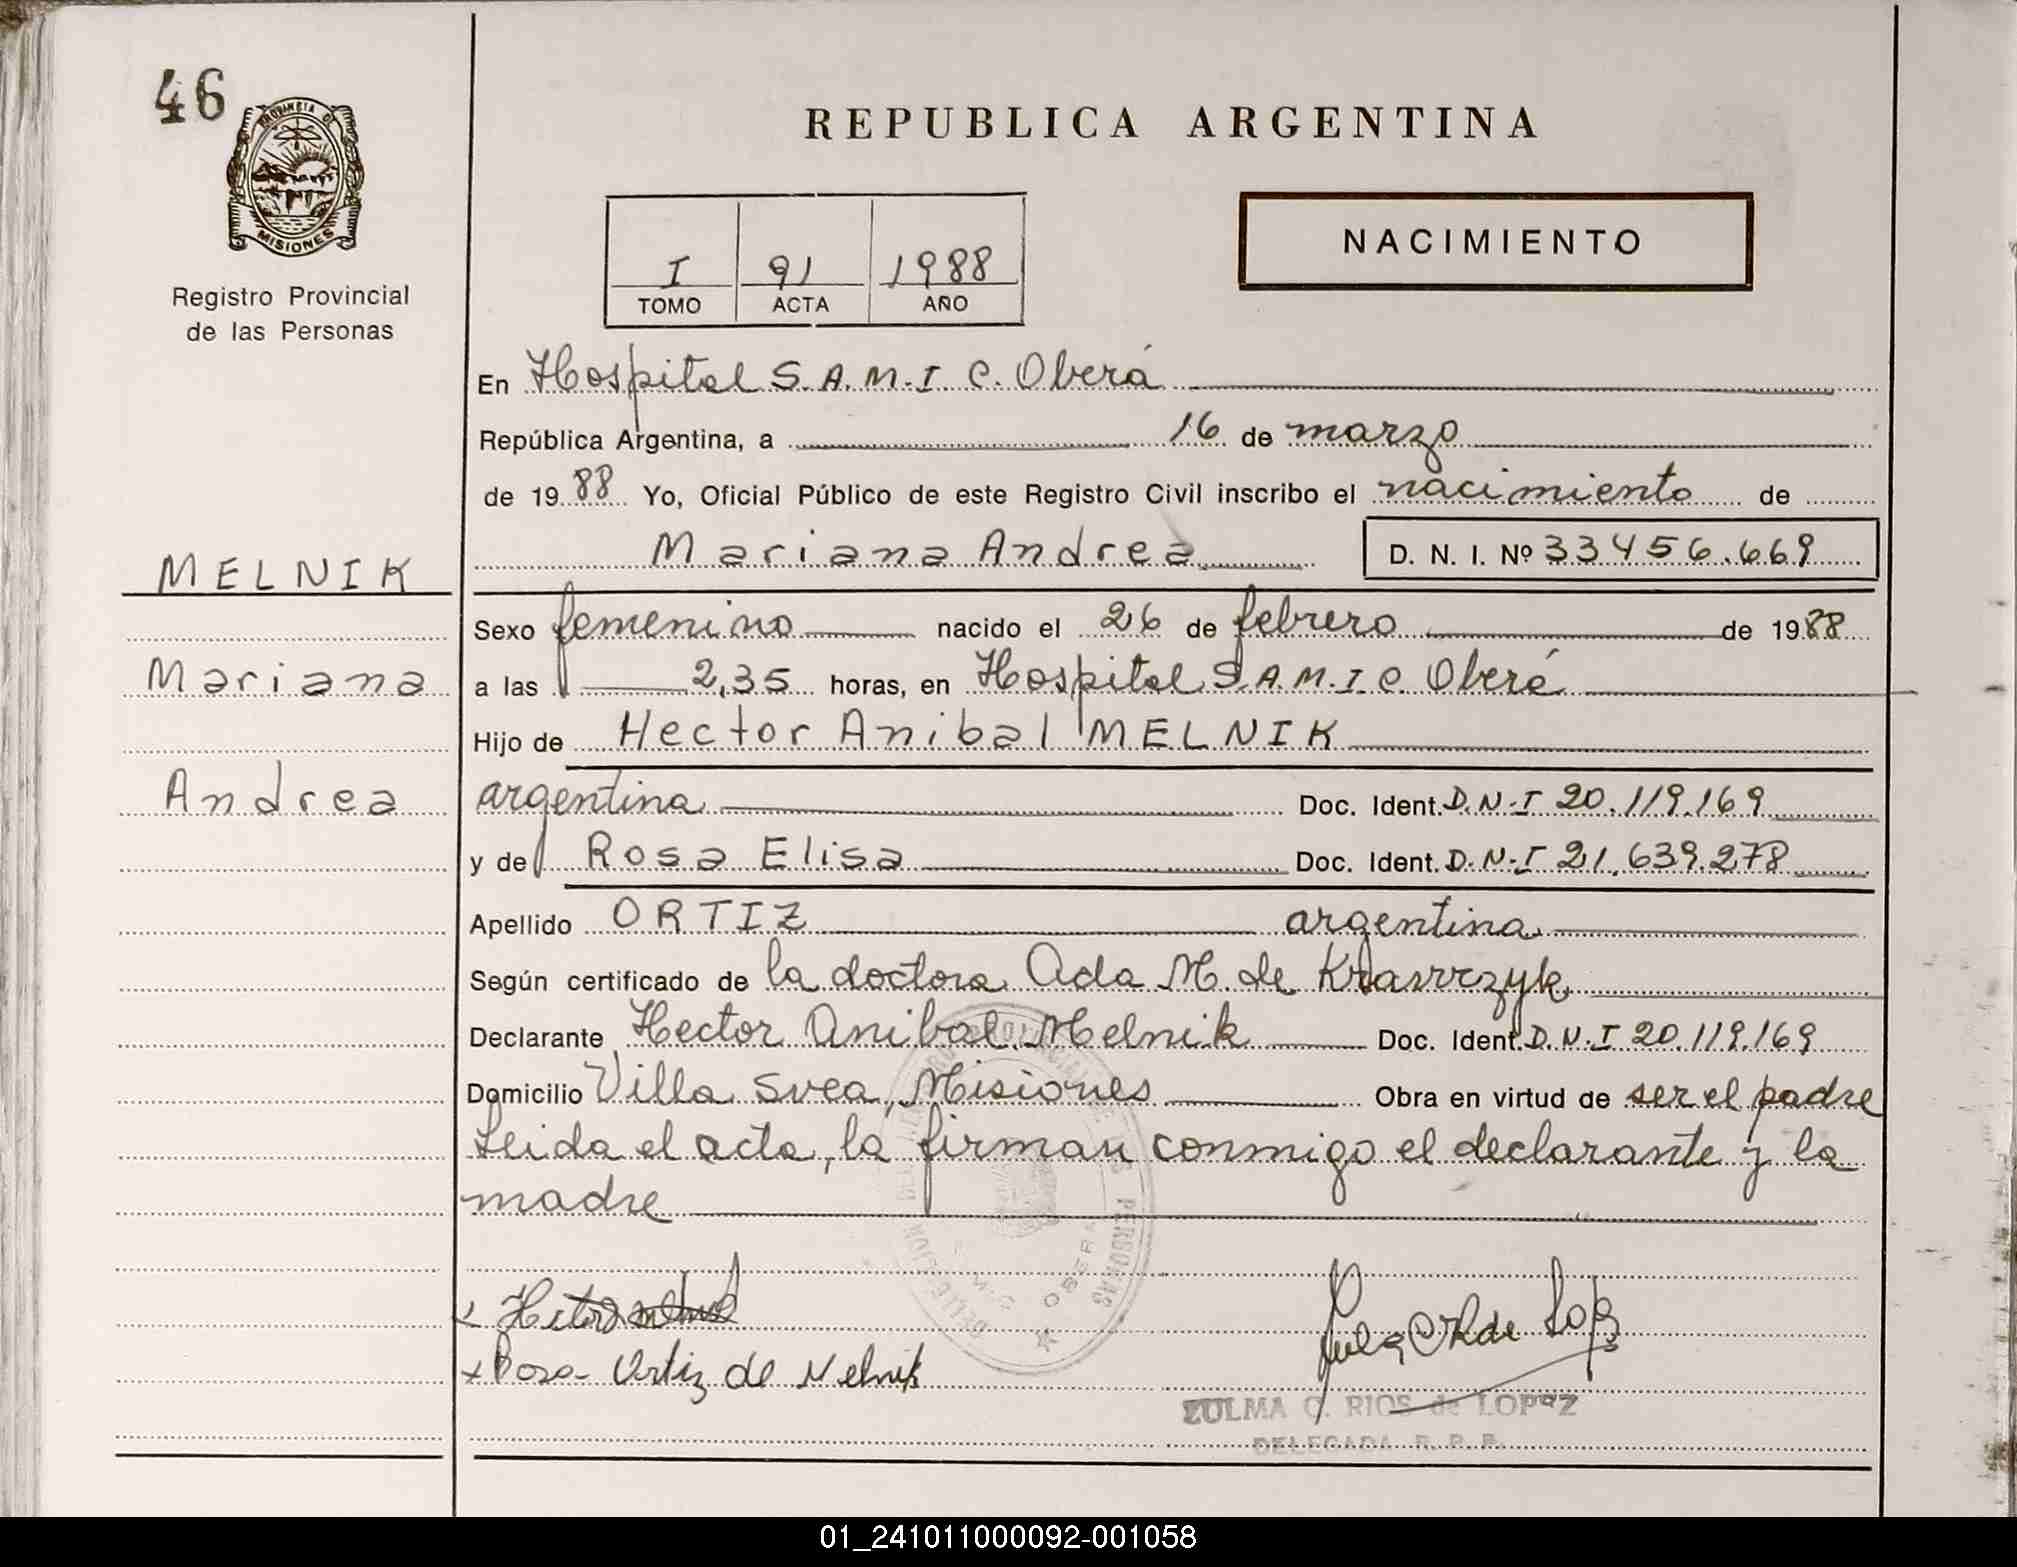 46
PROVINCIA D
MISIONES
Registro Provincial
de las Personas
REPUBLICA ARGENTINA
I 91 1988
TOMO ACTA AÑO
NACIMIENTO
En Hospital S.A.M.I.C. Oberá
República Argentina, a 16 de marzo
de 1988 Yo, Oficial Público de este Registro Civil inscribo el nacimiento de
Mariana Andrea D. N. I. Nº 33456.669
MELNIK
Mariana
Andrea
Sexo femenino nacido el 26 de febrero de 1988
a las 2,35 horas, en Hospital S.A.M.I.C. Oberá
Hijo de Hector Anibal MELNIK
argentina Doc. Ident. D.N.I 20.119.169
y de Rosa Elisa Doc. Ident. D.N.I 21.639.278
Apellido ORTIZ argentina
Según certificado de la doctora Ada M. de
Declarante Hector Anibal Melnik Doc. Ident. D.N.I 20.119.169
Domicilio Villa Svea, Misiones Obra en virtud de ser el padre
Leida el acta, la firman conmigo el declarante y la
madre
Rosa Ortiz de Melnik
ZULMA O. RIOS de LOPEZ
DELEGADA R. P. P.
PERSONAS
OBERA
01_241011000092-001058